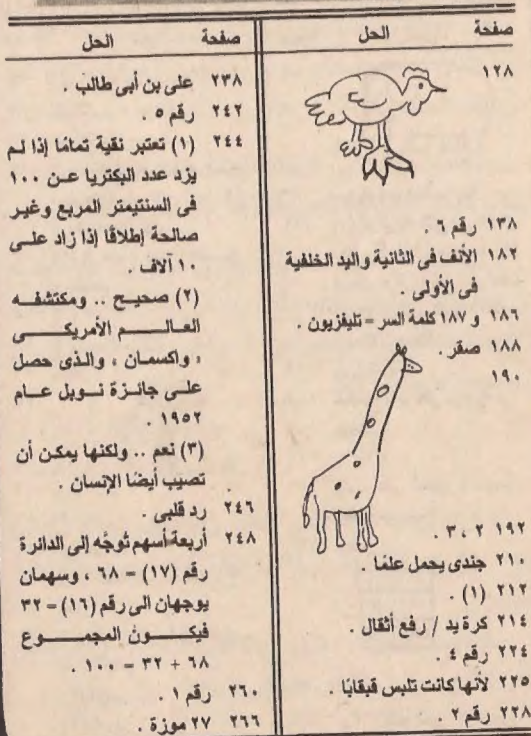 صفحة الحل
١٢٨
١٣٨ رقم ٦ .
١٨٢ الأنف فى الثانية واليد الخلفية
فى الأولى .
١٨٦ و ١٨٧ كلمة السر = تليفزيون .
١٨٨ صقر .
١٩٠
١٩٢ ٢ ، ٣ .
٢١٠ جندى يحمل علمًا .
٢١٢ (١) .
٢١٤ كرة يد / رفع أثقال .
٢٢٤ رقم ٤ .
٢٢٥ لأنها كانت تلبس قبقابًا .
٢٢٨ رقم ٢ .
صفحة الحل
٢٣٨ على بن أبى طالب .
٢٤٢ رقم ٥ .
٢٤٤ (١) تعتبر نقية تمامًا إذا لم
يزد عدد البكتريا عن ١٠٠
فى السنتيمتر المربع وغير
صالحة إطلاقًا إذا زاد على
١٠ آلاف .
(٢) صحيح .. ومكتشفه
العالم الأمريكى
« واكسمان » والذى حصل
على جائزة نوبل عام
١٩٥٢ .
(٣) نعم .. ولكنها يمكن أن
تصيب أيضًا الإنسان .
٢٤٦ رد قلبى .
٢٤٨ أربعة أسهم تُوجَّه إلى الدائرة
رقم (١٧) = ٦٨ ، وسهمان
يوجهان الى رقم (١٦) = ٣٢
فيكون المجموع
٦٨ + ٣٢ = ١٠٠ .
٢٦٠ رقم ١ .
٢٦٦ ٢٧ موزة .